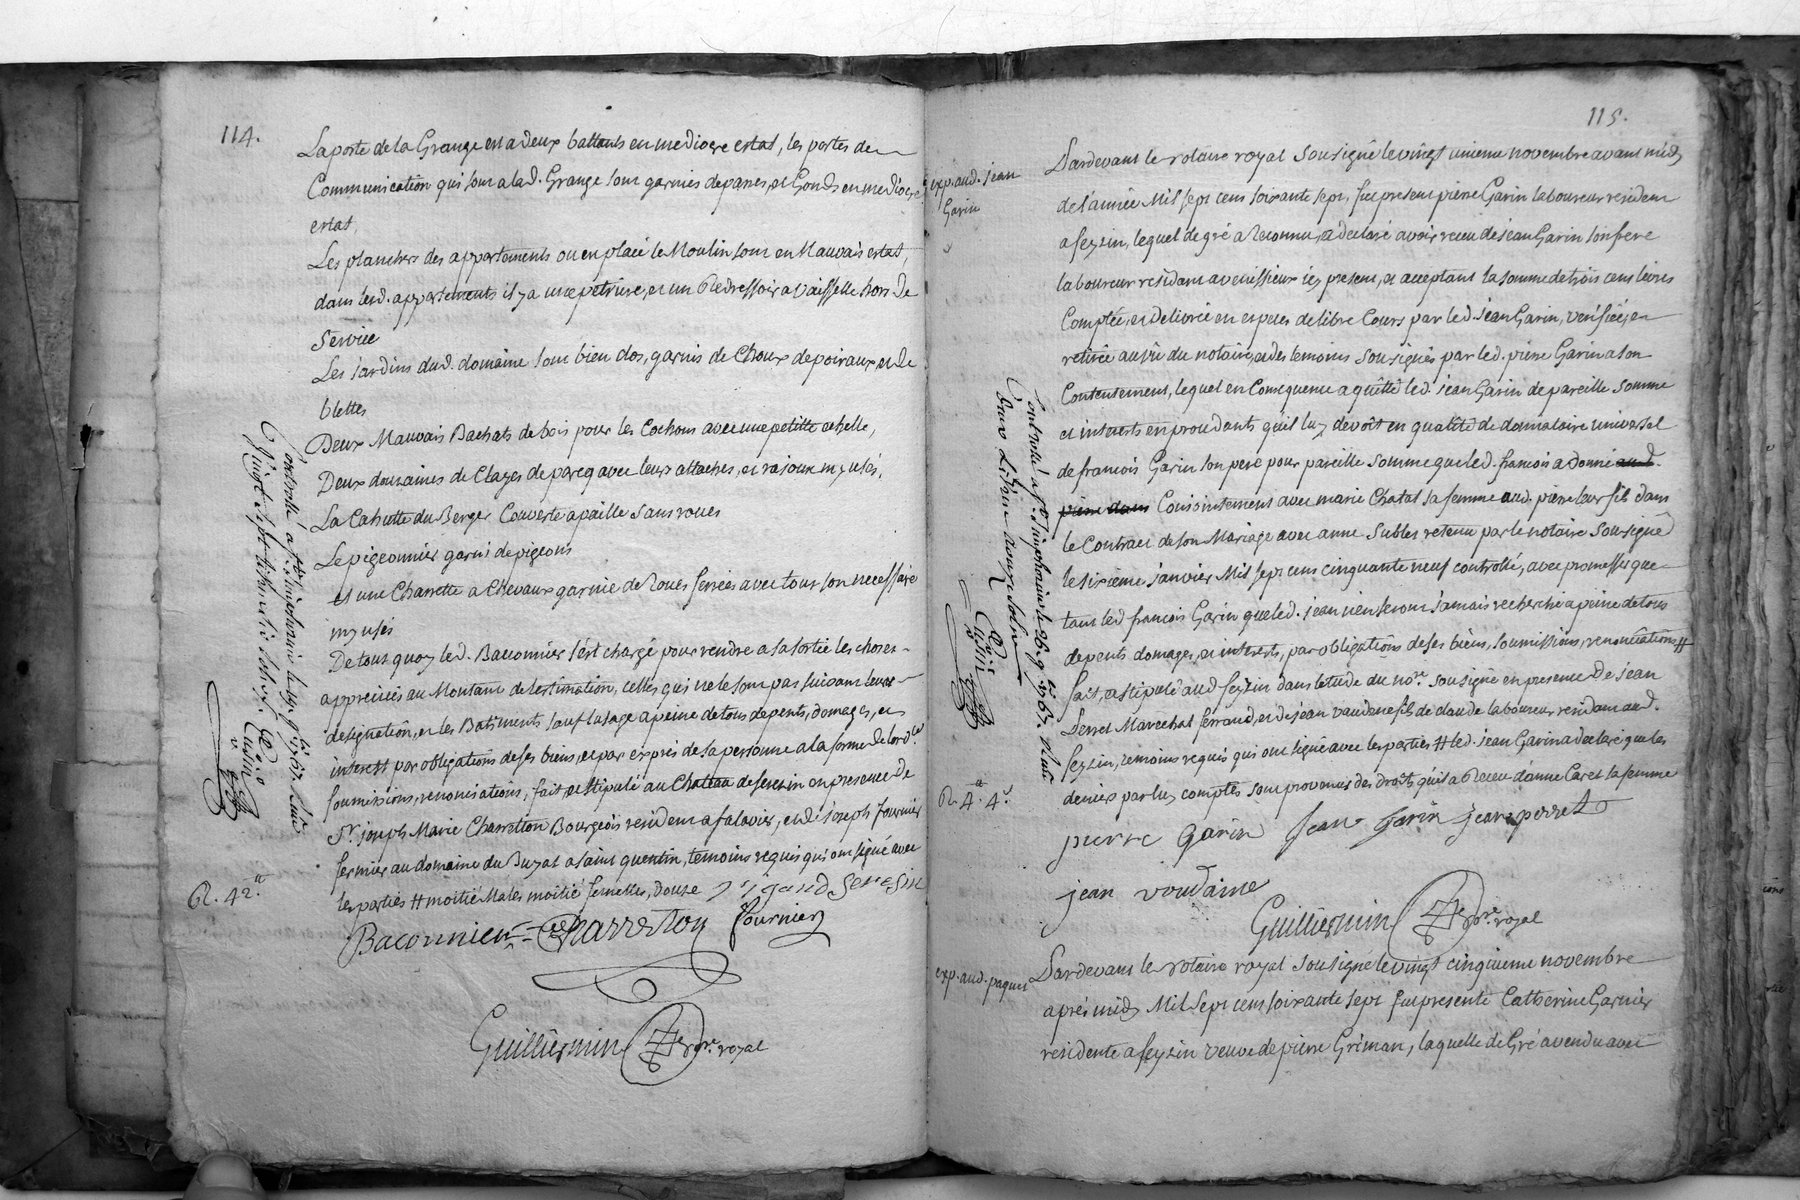 114.
La porte de la Grange est a deux battants en mediocre estat, les portes de
Communication qui sont a lad. Grange sont garnies de panes, et Gonds en mediocre
estat,
Les planchers des appartements ou en placé le Moulin sont en Mauvais estat,
dans lesd. appartements il y a une petriere, et un dressoir a vaisselle hors de
service
Les jardins dud. domaine sont bien clos, garnis de Choux de poiraux et de
blettes
Deux Mauvais Bachats de bois pour les Cochons avec une petitte echelle,
Deux douzaines de Clayes de parcq avec leurs attaches, et my usés,
La Cahutte du Berger Couverte a paille sans roues
Le pigeonnier garni de pigeons
et une Charrette a Chevaux garnie de Roues ferrées avec tout son necessaire
my usés
De tout quoy led. Baconnier s'est chargé pour rendre a sa sortie les choses
appretiées au Montant de lestimation, celles qui ne le sont pas suivant leur
designation, et les Batiments sauf lusage a peine de tous depents, domages, et
interest par obligations de ses biens, et par exprés de sa personne a la forme de lord.ce
soumissions, renonciations, fait, et stipulé au Chateau de seresin en presence de
Sr. joseph Marie Charretton Bourgeois resident a falavier, et de joseph fournier
fermier au domaine du Buzat a saint quentin, temoins requis qui ont signé avec
les parties # moitié Males moitié femelles, douze
Baconnier Charreton fournier
Guilliermin nore. royal
R. 42.tt
115.
exp. aud. jean
Garin
Pardevant le notaire royal sousigné le vingt unieme novembre avant midy
de l'année Mil sept cent soixante sept, fut present pierre Garin laboureur resident
a feyzin, lequel de gré a Reconnu, et declaré avoir receu de jean Garin son frere
laboureur residant a venissieux icy present, et acceptant la somme de trois cent livres
Comptée, et delivrée en especes de libre Cours par led. jean Garin, verifiée, et
retirée au vû du notaire, et des temoins sousignés par led. pierre Garin a son
Contentement, lequel en Consequence a quitté led. jean Garin de pareille somme
et interests en proudants quil luy devoit en qualité de donnataire universel
de francois Garin son pere pour pareille somme que led. francois a donné aud.
pierre dans Conjointement avec marie Chatat sa femme aud. pierre leur fils dans
le Contract de son Mariage avec anne Sublet retenu par le notaire sousigné
le sixieme janvier Mil sept cent cinquante neuf controllé, avec promesse que
tant led francois Garin que led. jean n'en seront jamais recherché a peine de tous
depents domages, et interests, par obligations de ses biens, soumissions, renonciations #
fait, et stipulé aud feyzin dans letude du nore. sousigné en presence de jean
Perret Marechal ferrand, et de jean vaudaine fils de claude laboureur residant aud.
feyzin, temoins requis qui ont signé avec les parties # led. jean Garin a declaré que les
deniers par luy comptés sont provenus des droits quil a Receu d'anne Caret sa femme
pierre garin jean garin jean perret
jean voudaine
Guilliermin nore. royal
R. 4.tt 4.s
exp. aud. paquet
Pardevant le notaire royal sousigné le vingt cinquieme novembre
aprés midy Mil sept cent soixante sept fut presente Catherine Garnier
residente a feyzin veuve de pierre Griman, laquelle de Gré a vendu avec